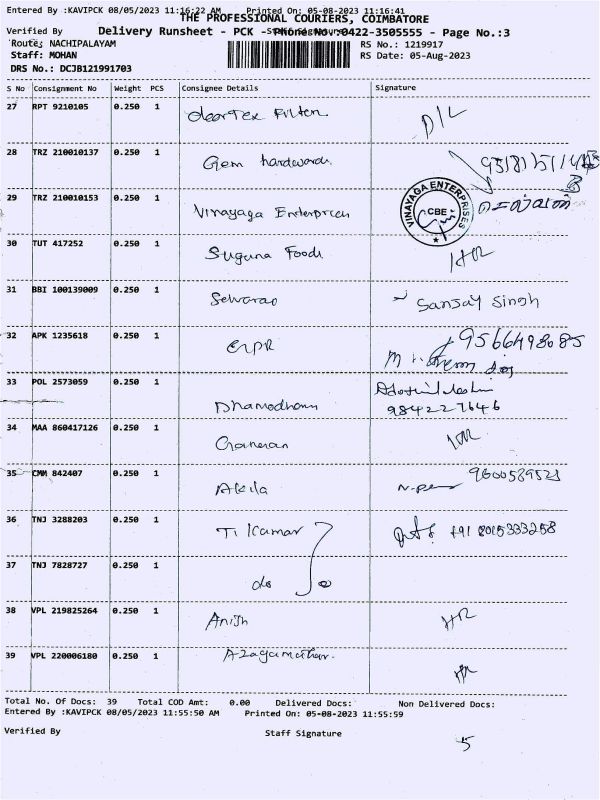 Entered By :KAVIPCK 08/05/2023 11:16:22 AM Printed On: 05-08-2023 11:16:41
THE PROFESSIONAL COURIERS, COIMBATORE
Verified By Delivery Runsheet - PCK - Phone No.:0422-3505555 - Page No.:3
Route: NACHIPALAYAM RS No.: 1219917
Staff: MOHAN RS Date: 05-Aug-2023
DRS No.: DCJB121991703
S No Consignment No Weight PCS Consignee Details Signature
27 RPT 9210105 0.250 1 cleartex Filter D/L
28 TRZ 210010137 0.250 1 Gem hardwards
29 TRZ 210010153 0.250 1 Vinayaga Enterprices VINAYAGA ENTERPRISES CBE
30 TUT 417252 0.250 1 Suguna Foods
31 BBI 100139009 0.250 1 Selvarao Sanjay Singh
32 APK 1235618 0.250 1 9566498085
33 POL 2573059 0.250 1 9842227646
34 MAA 860417126 0.250 1
35 CMM 842407 0.250 1 Akila 9600589521
36 TNJ 3288203 0.250 1 T. Kumar +91 8015333258
37 TNJ 7828727 0.250 1 do
38 VPL 219825264 0.250 1 Anish
39 VPL 220006180 0.250 1
Total No. Of Docs: 39 Total COD Amt: 0.00 Delivered Docs: Non Delivered Docs:
Entered By :KAVIPCK 08/05/2023 11:55:50 AM Printed On: 05-08-2023 11:55:59
Verified By Staff Signature
5